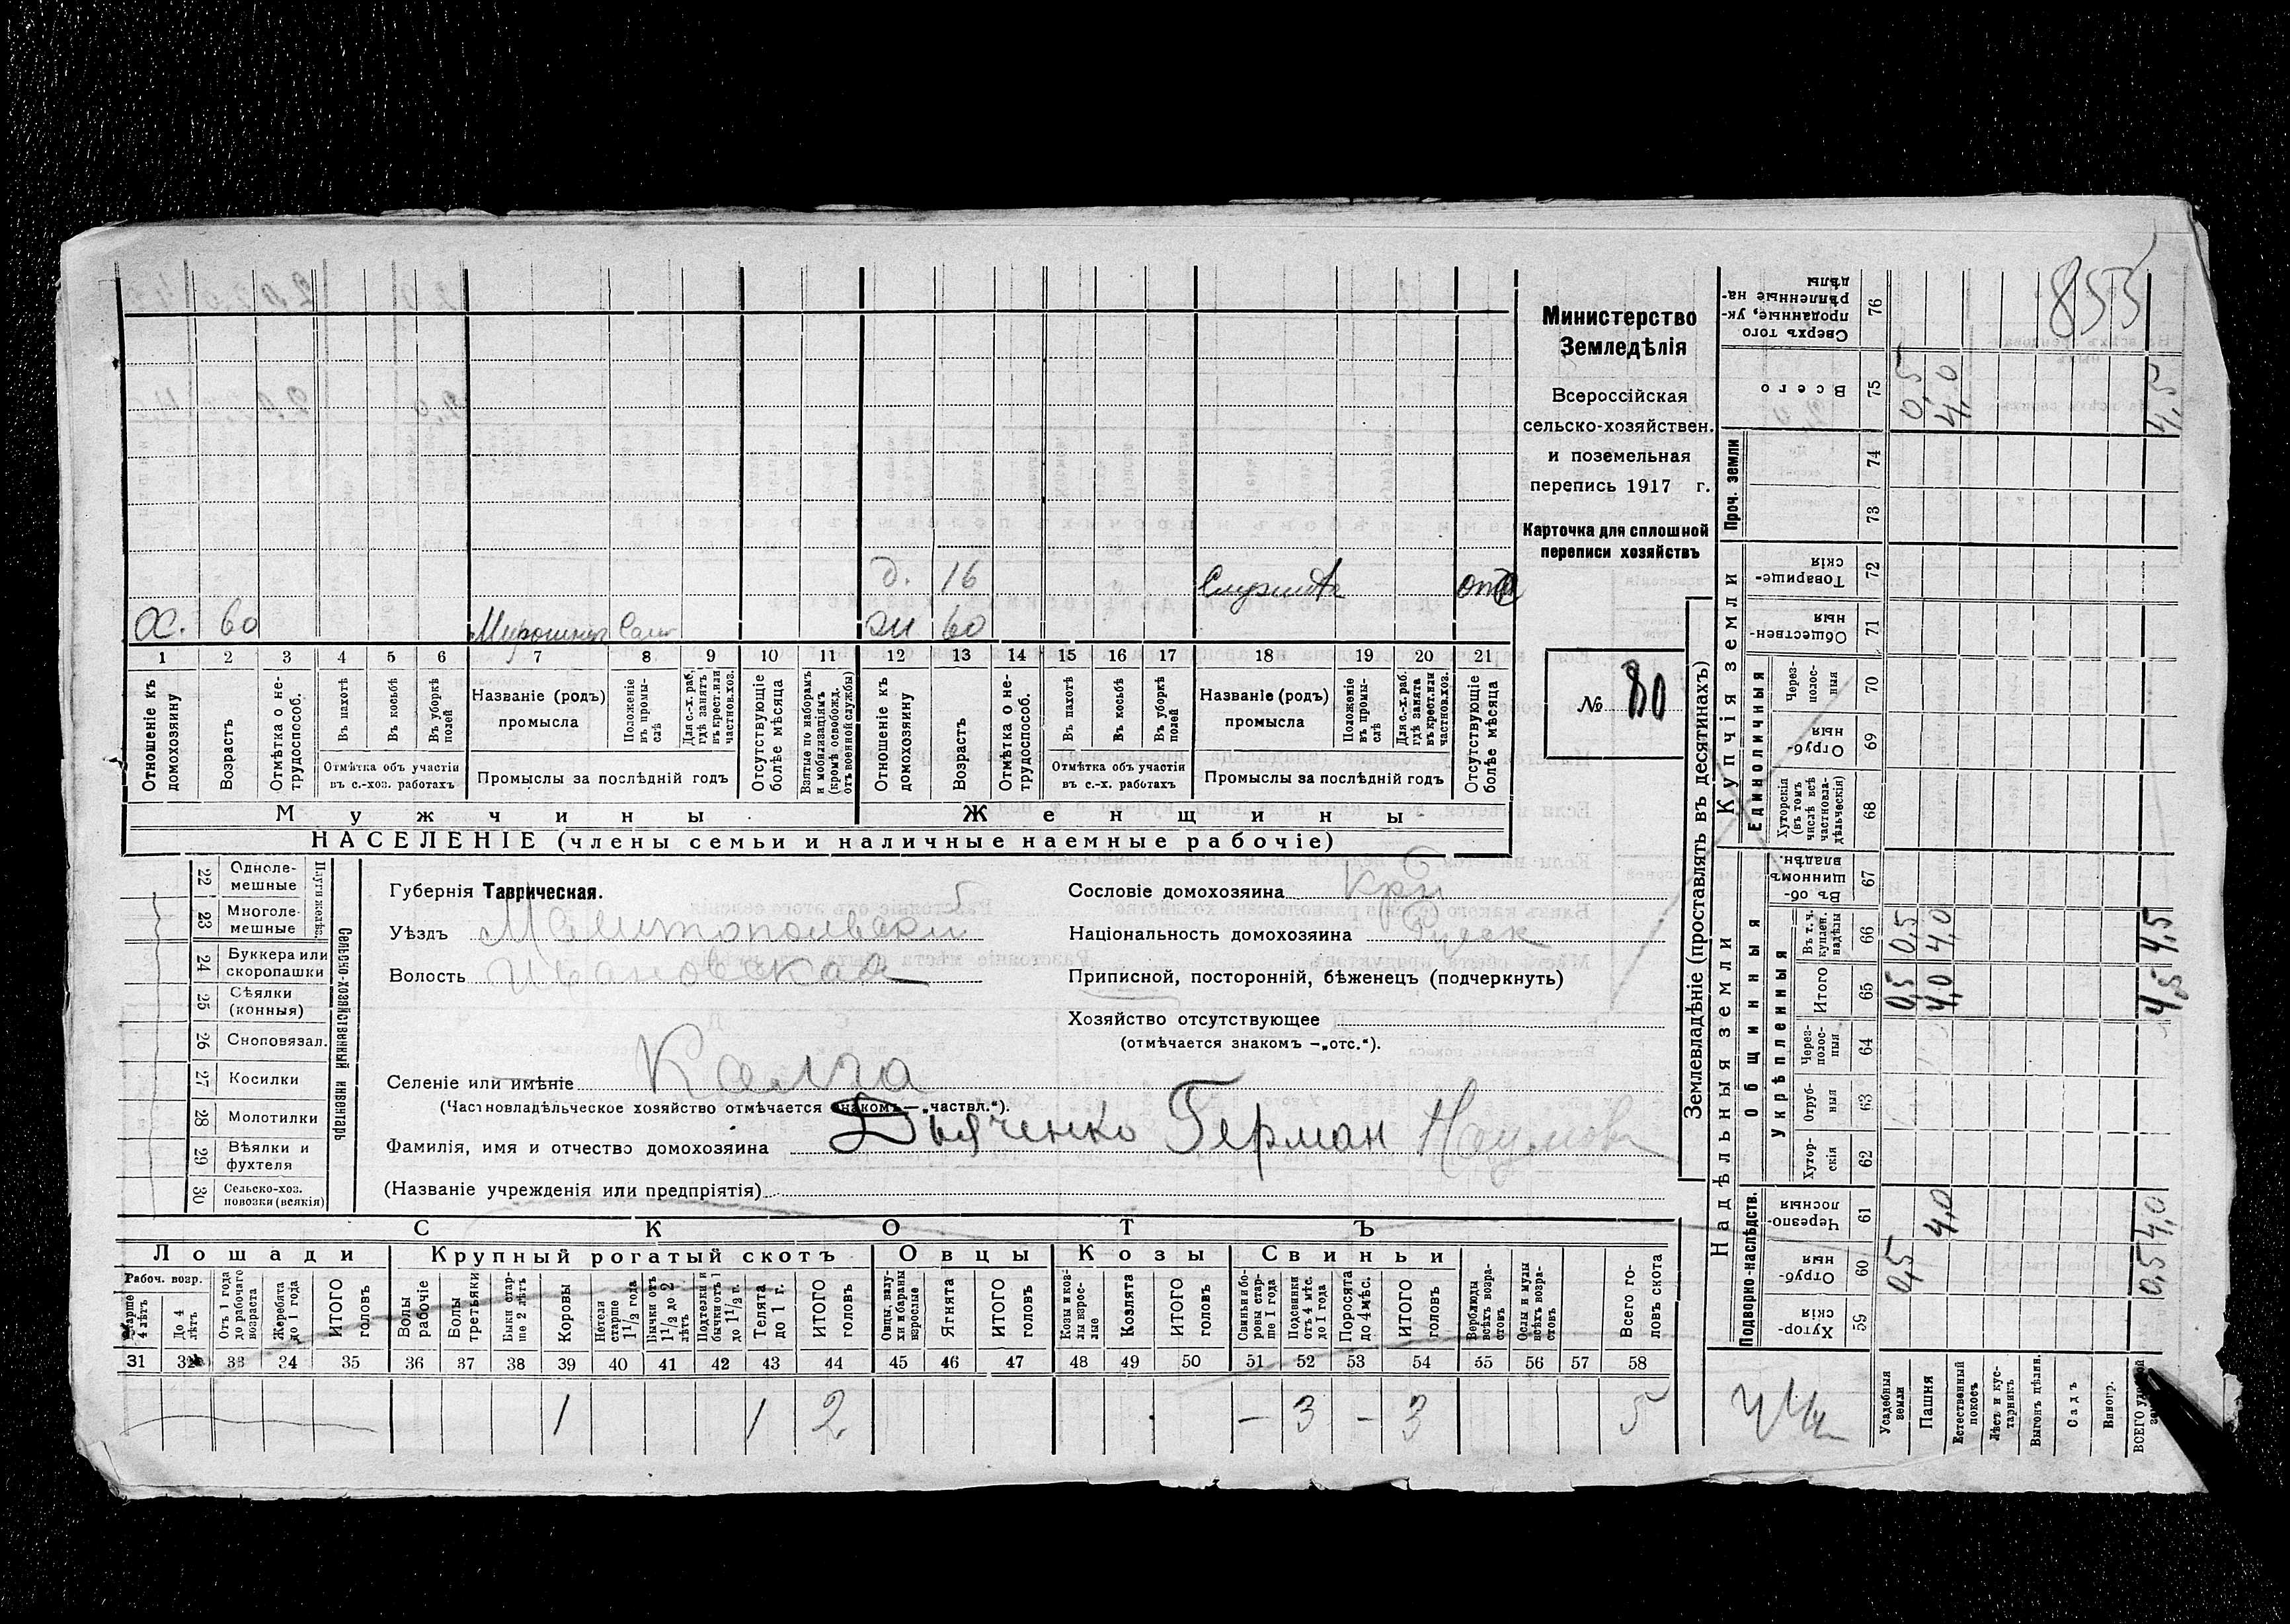 855
Министерство
Земледѣлія
Всероссійская
сельско-хозяйствен.
и поземельная
перепись 1917 г.
Карточка для сплошной
переписи хозяйствъ
№ 80
д. 16 отс
Х. 60 60
1 2 3 4 5 6 7 8 9 10 11 12 13 14 15 16 17 18 19 20 21
Отношеніе къ домохозяину
Возрастъ
Отмѣтка о не-трудоспособ.
Въ пахотѣ
Въ косьбѣ
Въ уборкѣ полей
Отмѣтка объ участіи
въ с.-хоз. работахъ
Названіе (родъ)
промысла
Положеніе въ промы-слѣ
Для с.-х. раб. гдѣ занятъ въ крест. или частнов. хоз.
Промыслы за послѣдній годъ
Отсутствующіе болѣе мѣсяца
Взятые по наборамъ и мобилизаціямъ (кромѣ освобожд. отъ военной службы)
Отношеніе къ домохозяину
Возрастъ
Отмѣтка о не-трудоспособ.
Въ пахотѣ
Въ косьбѣ
Въ уборкѣ полей
Отмѣтка объ участіи
въ с.-х. работахъ
Названіе (родъ)
промысла
Положеніе въ промы-слѣ
Для с.-х. раб. гдѣ занята въ крест. или частнов. хоз.
Промыслы за послѣдній годъ
Отсутствующіе болѣе мѣсяца
Мужчины Женщины
НАСЕЛЕНІЕ (члены семьи и наличные наемные рабочіе)
Сельско-хозяйственный инвентарь
Плуги желѣз.
22 Одноле-мешные
23 Многоле-мешные
24 Буккера или скоропашки
25 Сѣялки (конныя)
26 Сноповязал.
27 Косилки
28 Молотилки
29 Вѣялки и фухтеля
30 Сельско-хоз. повозки (всякія)
Губернія Таврическая.
Уѣздъ Мелитопольский
Волость Ивановская
Сословіе домохозяина Кр
Національность домохозяина Русск
Приписной, посторонній, бѣженецъ (подчеркнуть)
Хозяйство отсутствующее
(отмѣчается знакомъ —„отс.“).
Селеніе или имѣніе Калга
(Частновладѣльческое хозяйство отмѣчается знакомъ—„частвл.“).
Фамилія, имя и отчество домохозяина Дьяченко Герман Наумов
(Названіе учрежденія или предпріятія)
СКОТЪ
Лошади Крупный рогатый скотъ Овцы Козы Свиньи
Рабоч. возр.
Старше 4 лѣтъ
До 4 лѣтъ
Отъ 1 года до рабочаго возраста
Жеребята до 1 года
ИТОГО головъ
Волы рабочіе
Волы третьяки
Быки стар-ше 2 лѣтъ
Коровы
Нетели старше 1 1/2 года
Бычки отъ 1 1/2 до 2 лѣтъ
Подтелки и бычки отъ 1 до 1 1/2 г.
Телята до 1 г.
ИТОГО головъ
Овцы, валу-хи и бараны взрослые
Ягнята
ИТОГО головъ
Козы и коз-лы взрос-лые
Козлята
ИТОГО головъ
Свиньи и бо-ровы стар-ше 1 года
Подсвинки отъ 4 мѣс. до 1 года
Поросята до 4 мѣс.
ИТОГО головъ
Верблюды всѣхъ возра-стовъ
Ослы и мулы всѣхъ возра-стовъ
Всего го-ловъ скота
31 32 33 34 35 36 37 38 39 40 41 42 43 44 45 46 47 48 49 50 51 52 53 54 55 56 57 58
1 1 2 - 3 - 3 5
Землевладѣніе (проставлять въ десятинахъ)
Надѣльныя земли Купчія земли Проч. земли
Подворно-наслѣдств. Общинныя Единоличныя
Укрѣпленныя
59 Хутор-скія
60 Отруб-ныя 0,5 0,5
61 Черезпо-лосныя 4,0 4,0
62 Хутор-скія
63 Отруб-ныя
64 Через-полос-ныя
65 Итого 0,5 4,0 4,5
66 Въ т. ч. куплен. надѣлы 0,5 4,0 4,5
67 Въ об-щинномъ владѣн.
68 Хуторскія (въ томъ числѣ всѣ частновла-дѣльческія)
69 Отруб-ныя
70 Через-полос-ныя
71 Обществен-ныя
72 Товарище-скія
73
74
75 Всего 0,5 4,0 4,5
76 Сверхъ того проданные, ук-рѣпленные на-дѣлы
Усадебныя земли
Пашня
Естественный покосъ
Лѣсъ и кус-тарникъ
Выгонъ цѣлин.
Садъ
Виногр.
ВСЕГО